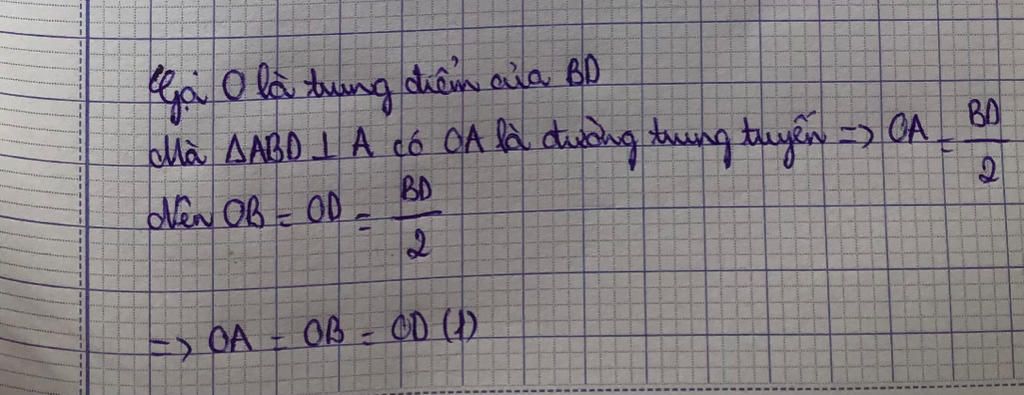 Gọi O là trung điểm của BD
Mà ΔABD ⊥ A có OA là đường trung tuyến => OA = BD/2
Nên OB = OD = BD/2
=> OA = OB = OD (1)